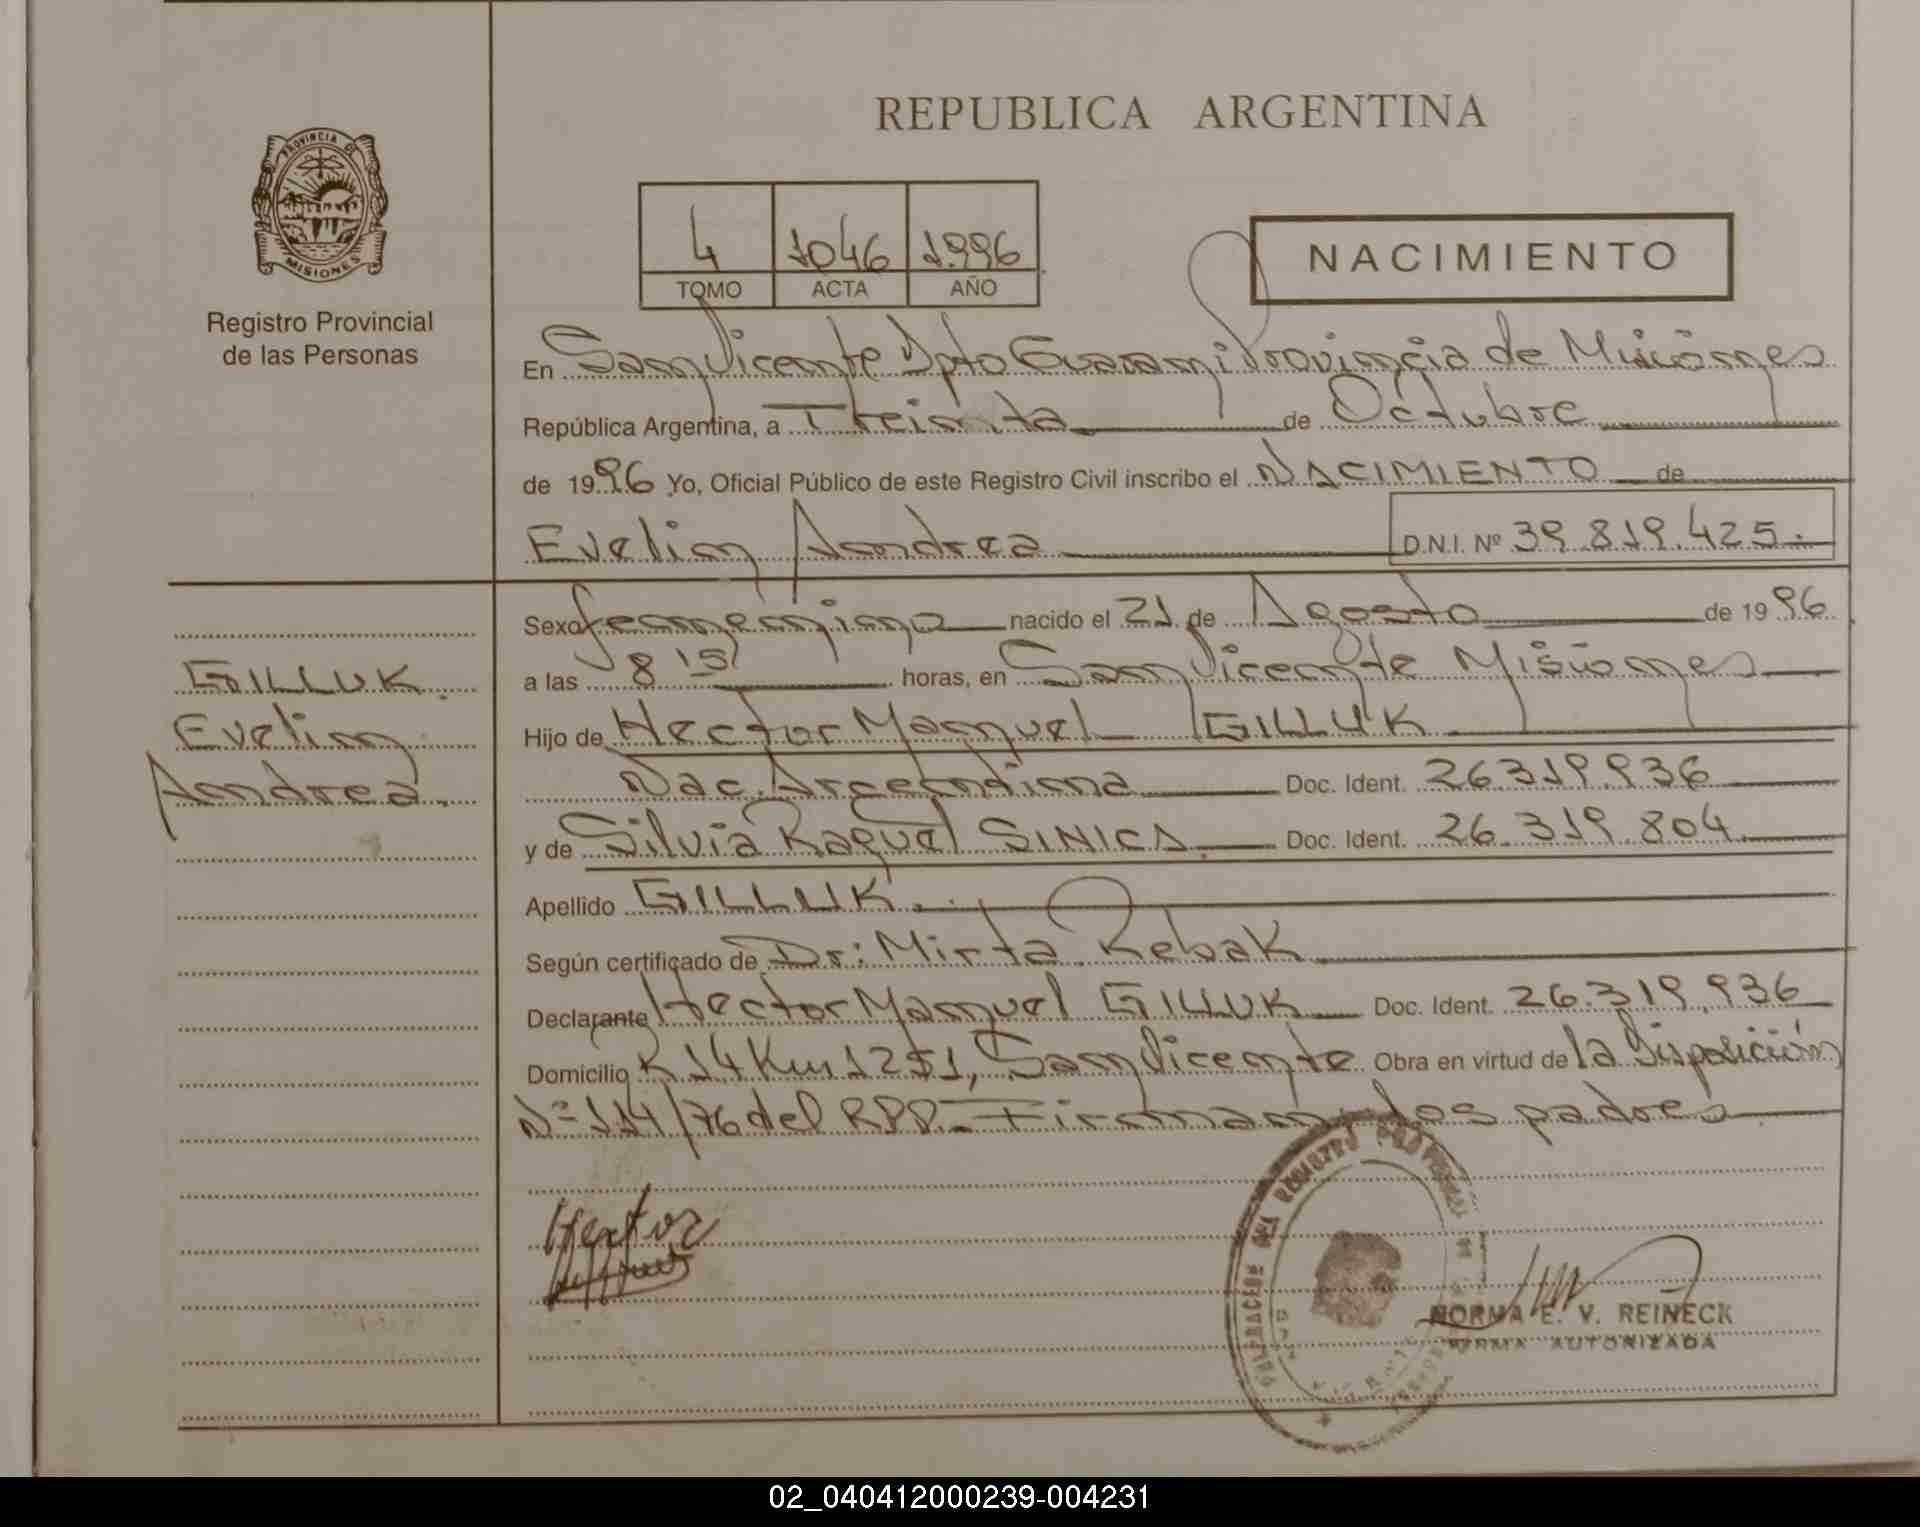 REPUBLICA ARGENTINA
PROVINCIA DE
MISIONES
Registro Provincial
de las Personas
4 1046 1996
TOMO ACTA AÑO
NACIMIENTO
En San Vicente Dpto Guarani Provincia de Misiones
República Argentina, a Treinta de Octubre
de 1996 Yo, Oficial Público de este Registro Civil inscribo el NACIMIENTO de
Evelin Andrea D.N.I. Nº 39.819.425.
GILLUK
Evelin
Andrea.
Sexo femenino nacido el 21 de Agosto de 1996
a las 8'15' horas, en San Vicente Misiones
Hijo de Hector Manuel GILLUK
Nac. Argentina Doc. Ident. 26319.936
y de Silvia Raquel SINICA. Doc. Ident. 26.319.804
Apellido GILLUK.
Según certificado de Dr: Mirta Rebak
Declarante Hector Manuel GILLUK Doc. Ident. 26.319.936
Domicilio R 14 Km 1251, San Vicente Obra en virtud de la Disposición
Nº 114/76 del RPP. Firman los padres
Hector
NORMA E. V. REINECK
FIRMA AUTORIZADA
02_040412000239-004231